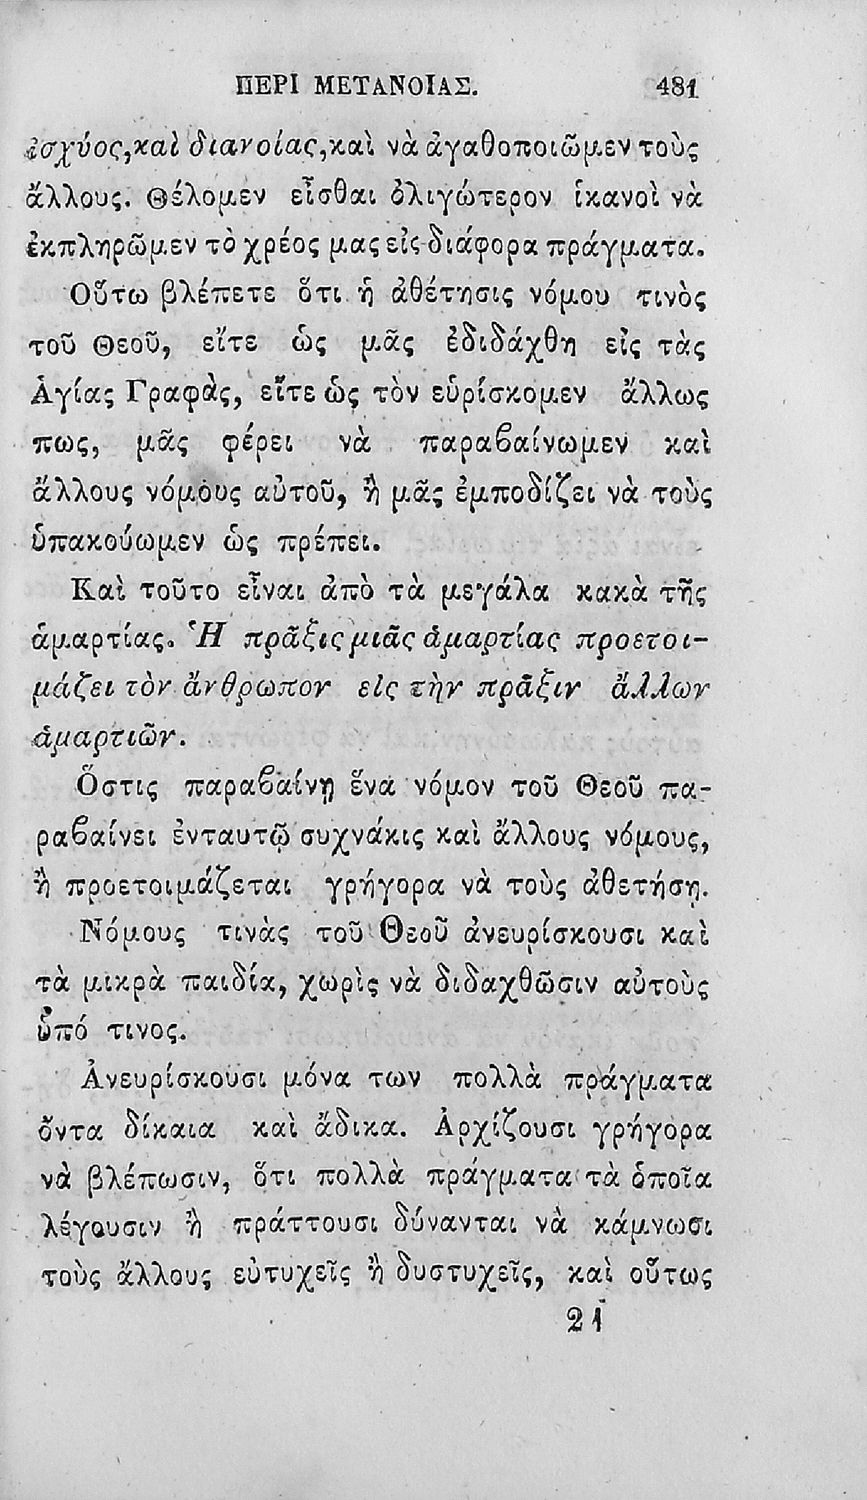 ΠΕΡΙ ΜΕΤΑΝΟΙΑΣ. 481
ἰσχύος, καὶ διανοίας, καὶ νὰ ἀγαθοποιῶμεν τοὺς
ἄλλους. Θέλομεν εἶσθαι ὀλιγώτερον ἱκανοὶ νὰ
ἐκπληρῶμεν τὸ χρέος μας εἰς διάφορα πράγματα.
Οὕτω βλέπετε ὅτι ἡ ἀθέτησις νόμου τινὸς
τοῦ Θεοῦ, εἴτε ὡς μᾶς ἐδιδάχθη εἰς τὰς
Ἁγίας Γραφὰς, εἴτε ὡς τὸν εὑρίσκομεν ἄλλως
πως, μᾶς φέρει νὰ παραβαίνωμεν καὶ
ἄλλους νόμους αὐτοῦ, ἢ μᾶς ἐμποδίζει νὰ τοὺς
ὑπακούωμεν ὡς πρέπει.
Καὶ τοῦτο εἶναι ἀπὸ τὰ μεγάλα κακὰ τῆς
ἁμαρτίας. Ἡ πρᾶξις μιᾶς ἁμαρτίας προετοι-
μάζει τὸν ἄνθρωπον εἰς τὴν πρᾶξιν ἄλλων
ἁμαρτιῶν.
Ὅστις παραβαίνῃ ἕνα νόμον τοῦ Θεοῦ πα-
ραβαίνει ἐνταυτῷ συχνάκις καὶ ἄλλους νόμους,
ἢ προετοιμάζεται γρήγορα νὰ τοὺς ἀθετήσῃ.
Νόμους τινὰς τοῦ Θεοῦ ἀνευρίσκουσι καὶ
τὰ μικρὰ παιδία, χωρὶς νὰ διδαχθῶσιν αὐτοὺς
ὑπό τινος.
Ἀνευρίσκουσι μόνα των πολλὰ πράγματα
ὄντα δίκαια καὶ ἄδικα. Ἀρχίζουσι γρήγορα
νὰ βλέπωσιν, ὅτι πολλὰ πράγματα τὰ ὁποῖα
λέγουσιν ἢ πράττουσι δύνανται νὰ κάμνωσι
τοὺς ἄλλους εὐτυχεῖς ἢ δυστυχεῖς, καὶ οὕτως
21